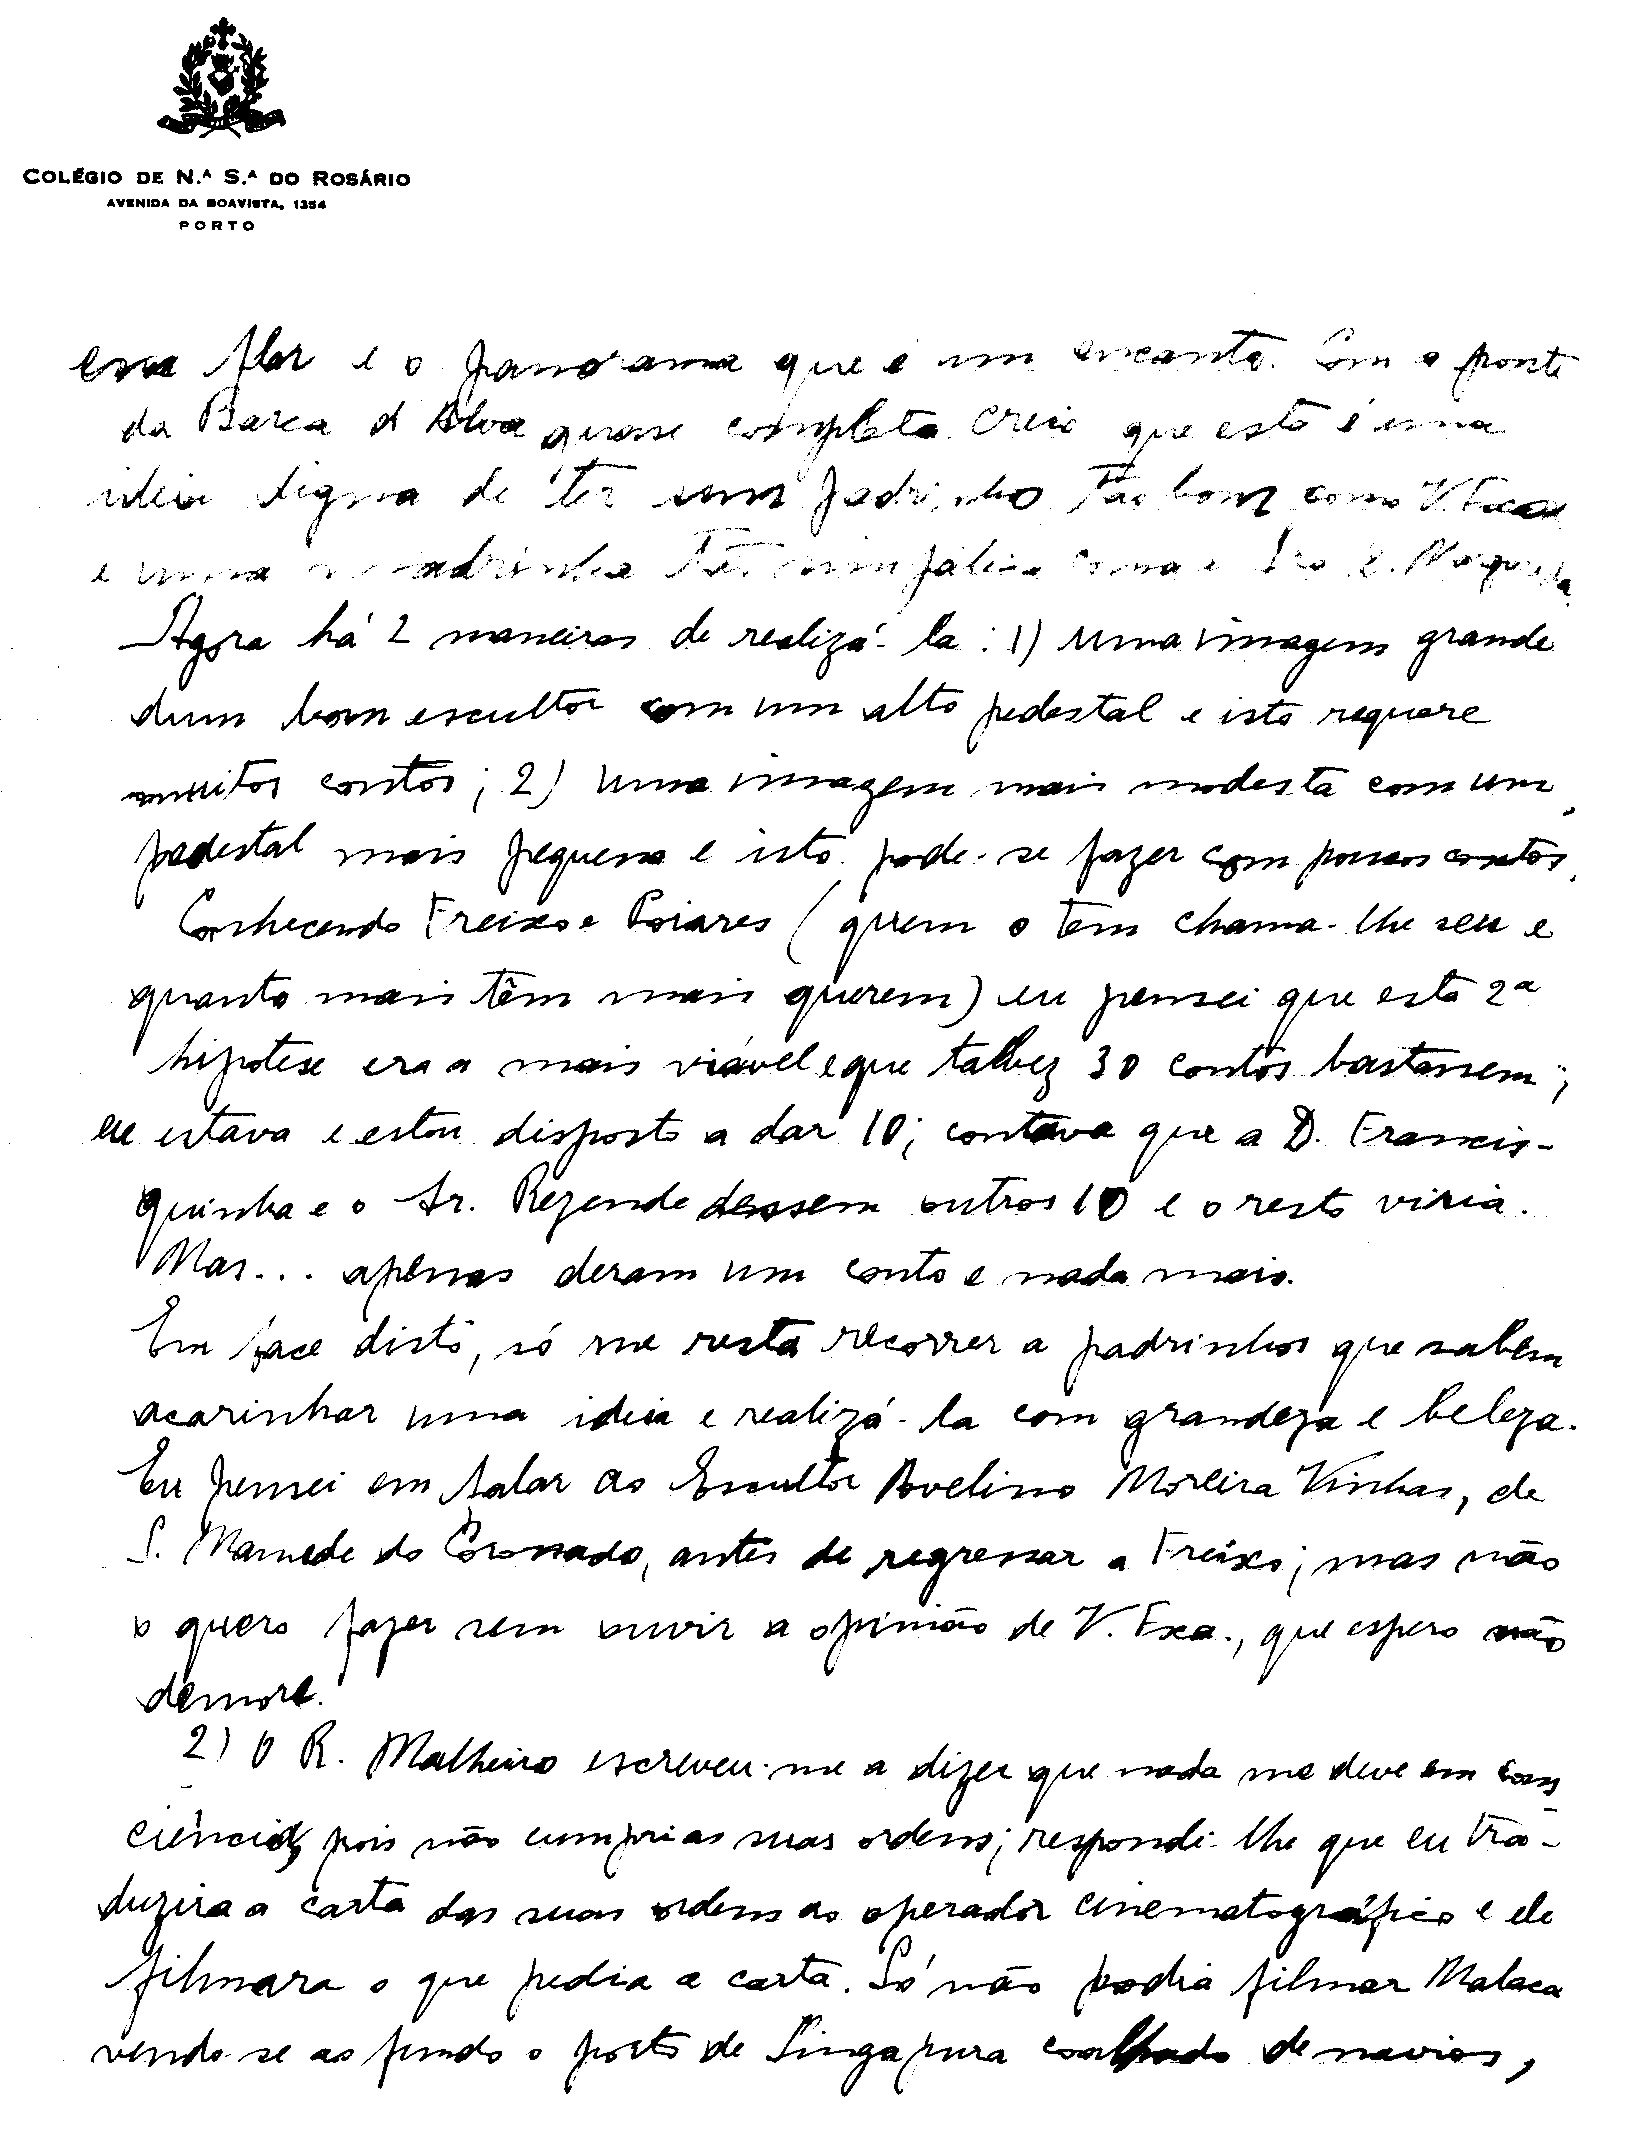 COLÉGIO DE N.ª S.ª DO ROSÁRIO
AVENIDA DA BOAVISTA, 1354
PORTO
em flor e o panorama que é um encanto. Com a ponte
da Barca d'Alva quase completa. Creio que esta é uma
ideia digna de ter um padrinho tão bom como V. Exa
e uma madrinha tão simpática como a Sra D.
Agora há 2 maneiras de realizá-la: 1) uma imagem grande
dum bom escultor com um alto pedestal e isto requere
muitos contos; 2) uma imagem mais modesta com um
pedestal mais pequeno e isto pode-se fazer com poucos contos.
Conhecendo Freixo e Poiares (quem o tem chama-lhe seu e
quanto mais têm mais querem) eu pensei que esta 2ª
hipotese era a mais viável e que talvez 30 contos bastassem;
eu estava e estou disposto a dar 10; contava que a D. Francis-
quinha e o Sr. Rezende dessem outros 10 e o resto viria.
Mas... apenas deram um conto e nada mais.
Em face disto, só me resta recorrer a padrinhos que sabem
acarinhar uma ideia e realizá-la com grandeza e beleza.
Eu pensei em falar ao Escultor Avelino Moreira Vinhas, de
S. Mamede do Coronado, antes de regressar a Freixo; mas não
o quero fazer sem ouvir a opinião de V. Exa., que espero não
demore.
2) O R. Malheiro escreveu-me a dizer que nada me deve em cons
ciência, pois não cumpri as suas ordens; respondi-lhe que eu tra-
duzira a carta das suas ordens ao operador cinematográfico e ele
filmara o que pedia a carta. Só não podia filmar Malaca
vendo-se ao fundo o porto de Singapura coalhado de navios,